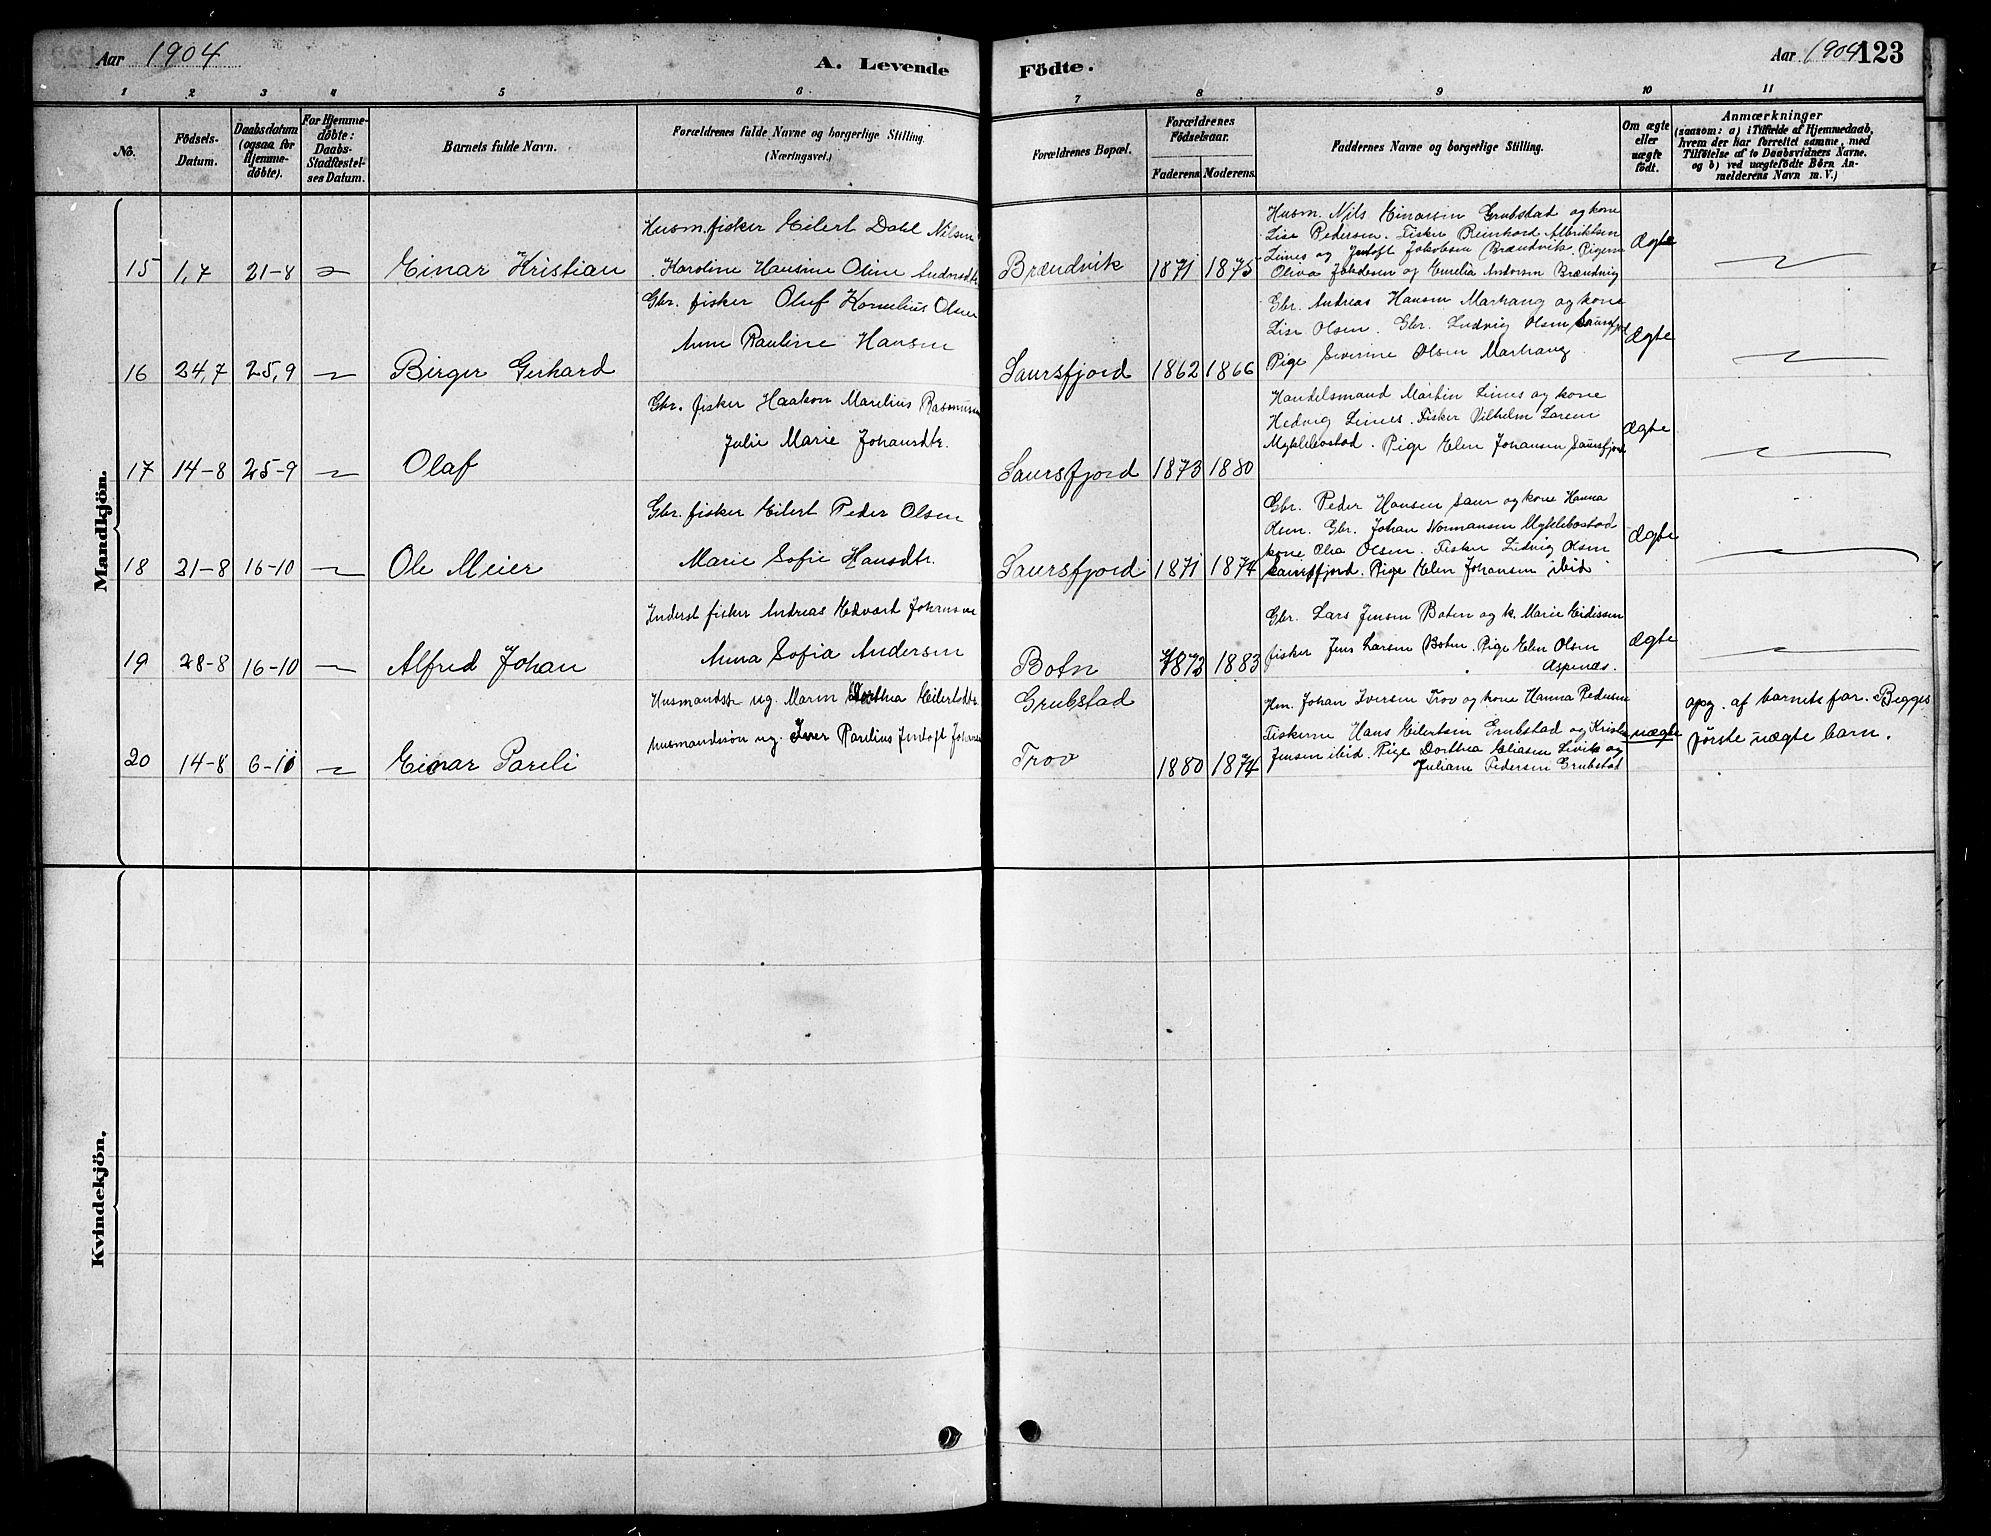 Aar 1904
A. Levende
Födte.
Aar 1904
123
1 2 3 4 5 6
7 8 9 10 11
No.
Födsels-
Datum.
Daabsdatum
(ogsaa for
Hjemme-
döbte).
For Hjemme-
döbte:
Daabs-
Stadfæstel-
ses Datum.
Barnets fulde Navn.
Forældrenes fulde Navne og borgerlige Stilling.
(Næringsvei.)
Forældrenes Bopæl.
Forældrenes
Födselsaar.
Faderens. Moderens.
Faddernes Navne og borgerlige Stilling.
Om ægte
eller
uægte
födt.
Anmærkninger
(saasom: a) i Tilfælde af Hjemmedaab,
hvem der har forrettet samme, med
Tilföielse af to Daabsvidners Navne.
og b) ved uægtefödte Börn An-
melderens Navn m. V.)
Mandkjön.
15 1,7 21-8 Einar Kristian
Husm. fisker Eilert Dahl Nilsen
Karoline Hansine Oline Andersdtr
Brændvik 1871 1875
Husm. Nils Einarsen Grubstad og kone
Lise Pedersen. Fisker Reinhord Albriktsen
Lines og Jentoft Jakobsen Brændvik. Pigerne
Oliva Jakobsen og Emelia Andersen Brændvig
Ægte
16 24,7 25,9 Birger Gerhard
Gbr. fisker Oluf Kornelius Olsen
Anne Pauline Hansen
Saursfjord 1862 1866
Gbr. Andreas Hansen Marhaug og kone
Lise Olsen. Gbr. Ludvig Olsen Saursfjord
Pige Severine Olsen Marhaug.
Ægte
17 14-8 25-9 Olaf
Gbr. fisker Haakon Marelius Rasmussen
Julie Marie Johansdtr.
Saursfjord 1873 1880
Handelsmand Martin Lines og kone
Hedvig Lines. Fisker Vilhelm Larsen
Myklebostad. Pige Elen Johansen Saursfjord
Ægte
18 21-8 16-10 Ole Meier
Gbr. fisker Eilert Peder Olsen
Marie Sofie Hansdtr.
Saursfjord 1871 1874
Gbr. Peder Hansen Saur og kone Hanna
Olsen. Gbr. Johan Normansen Myklebostad
kone Olia Olsen. Fisker Ludvig Olsen
Saursfjord. Pige Elen Johansen ibid
Ægte
19 28-8 16-10 Alfred Johan
Inderst fisker Andreas Edvart Johansen
Anna Sofia Andersen
Botn 1872 1883
Gbr. Lars Jensen Boten og k. Marie Eidissen
fisker Jens Larsen Boten. Pige Elen Olsen
Aspenæs.
Ægte
20 14-8 6-11 Einar Pareli
Husmandsdtr ug. Maren Dorthea Eilertsdtr.
husmandssön ug. Iver Parelius Jentoft Johansen
Grubstad
Trov 1880 1874
Hm. Johan Iversen Trov og kone Hanna Pedersen
Fiskerne Hans Eilertsen Grubstad og Kristen
Jensen ibid. Pige Dorthea Eliasen Livik og
Juliane Pedersen Grubstad
uægte
opg. af barnets far. Begges
første uægte barn.
Kvindekjön.